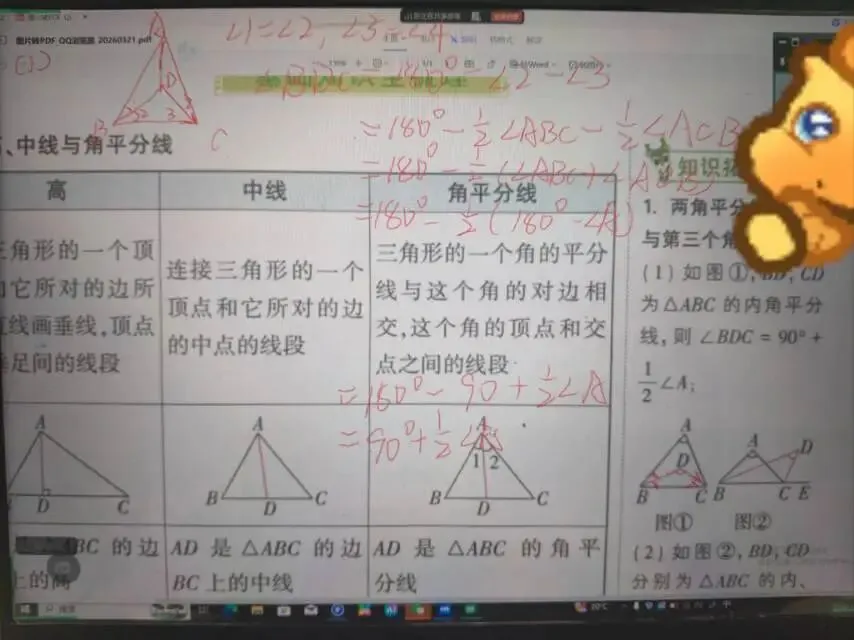 图片转PDF_QQ浏览器_20260321.pdf
(1)
∠1=∠2, ∠3=∠4
∠BDC=180°-∠2-∠3
=180°-½∠ABC-½∠ACB
=180°-½(∠ABC+∠ACB)
=180°-½(180°-∠A)
=180°-90+½∠A
=90°+½∠A
A
D
B
2
3
C
、中线与角平分线
高
中线
角平分线
三角形的一个顶
它所对的边所
直线画垂线,顶点
垂足间的线段
连接三角形的一个
顶点和它所对的边
的中点的线段
三角形的一个角的平分
线与这个角的对边相
交,这个角的顶点和交
点之间的线段
A
D
C
A
B
D
C
A
1 2
B
D
C
△ABC 的边
上的高
AD 是 △ABC 的边
BC 上的中线
AD 是 △ABC 的角平
分线
知识拓
1. 两角平分
与第三个角
(1) 如图①, BD, CD
为 △ABC 的内角平分
线, 则 ∠BDC = 90° +
½∠A;
A
D
B
C
A
D
B
C E
图①
图②
(2) 如图②, BD, CD
分别为 △ABC 的内、
20°C